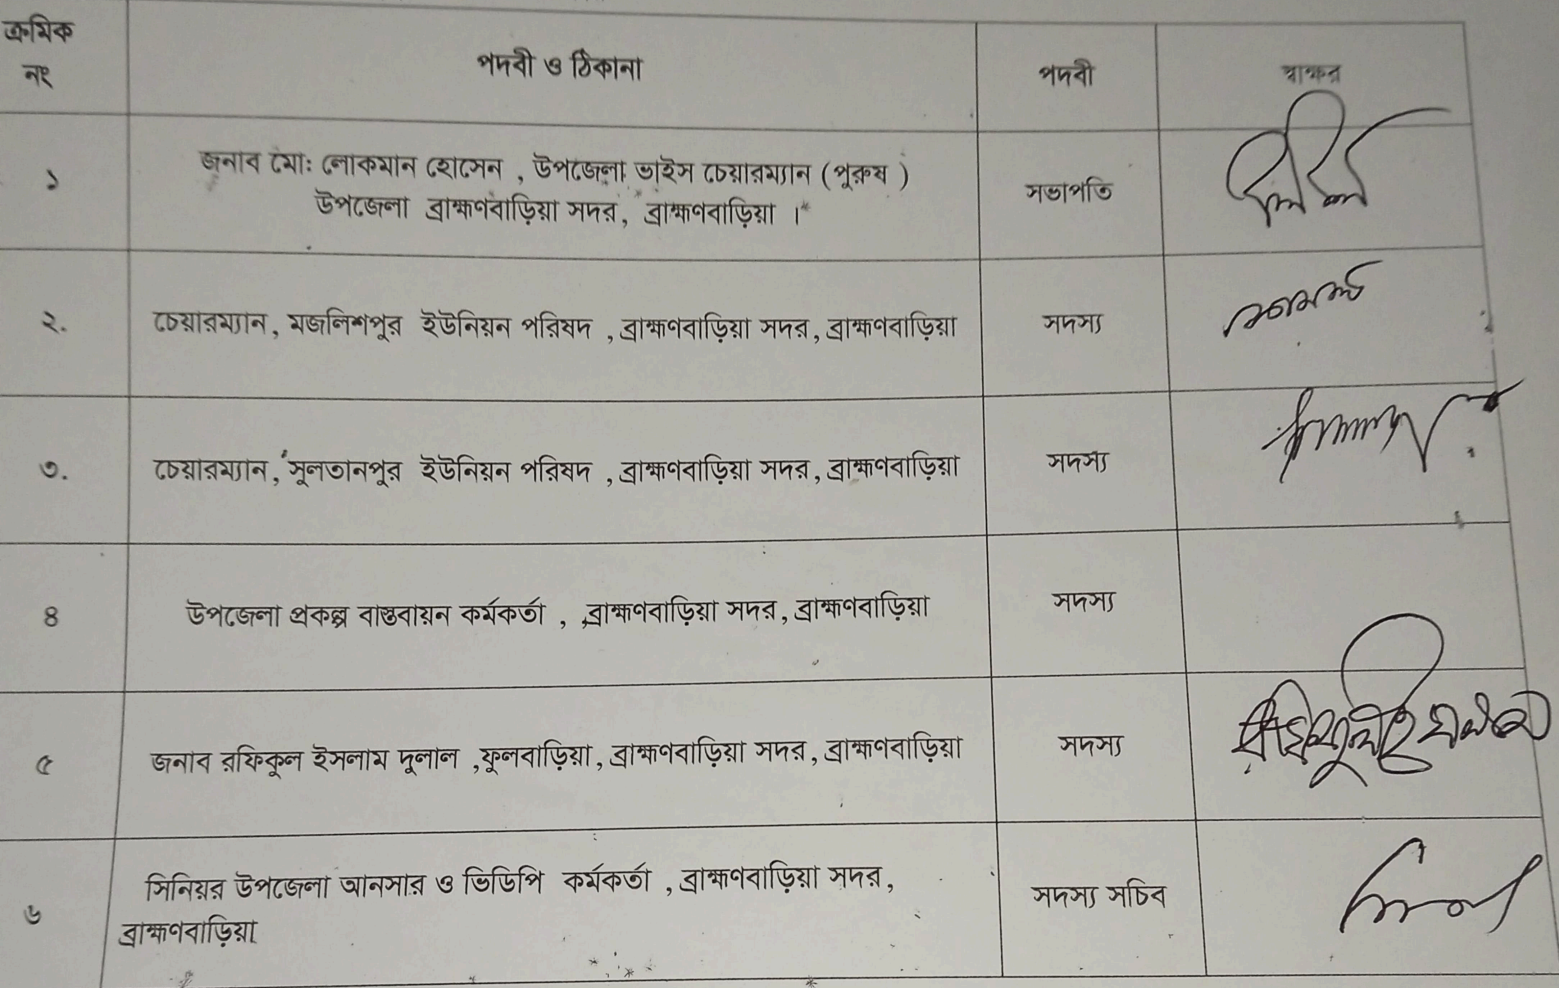 ক্রমিক
নং
পদবী ও ঠিকানা
পদবী
স্বাক্ষর
১
জনাব মোঃ লোকমান হোসেন , উপজেলা ভাইস চেয়ারম্যান (পুরুষ )
উপজেলা ব্রাহ্মণবাড়িয়া সদর, ব্রাহ্মণবাড়িয়া ।
সভাপতি
২.
চেয়ারম্যান, মজলিশপুর ইউনিয়ন পরিষদ , ব্রাহ্মণবাড়িয়া সদর, ব্রাহ্মণবাড়িয়া
সদস্য
৩.
চেয়ারম্যান, সুলতানপুর ইউনিয়ন পরিষদ , ব্রাহ্মণবাড়িয়া সদর, ব্রাহ্মণবাড়িয়া
সদস্য
৪
উপজেলা প্রকল্প বাস্তবায়ন কর্মকর্তা , ব্রাহ্মণবাড়িয়া সদর, ব্রাহ্মণবাড়িয়া
সদস্য
৫
জনাব রফিকুল ইসলাম দুলাল ,ফুলবাড়িয়া, ব্রাহ্মণবাড়িয়া সদর, ব্রাহ্মণবাড়িয়া
সদস্য
৬
সিনিয়র উপজেলা আনসার ও ভিডিপি কর্মকর্তা , ব্রাহ্মণবাড়িয়া সদর,
ব্রাহ্মণবাড়িয়া
সদস্য সচিব